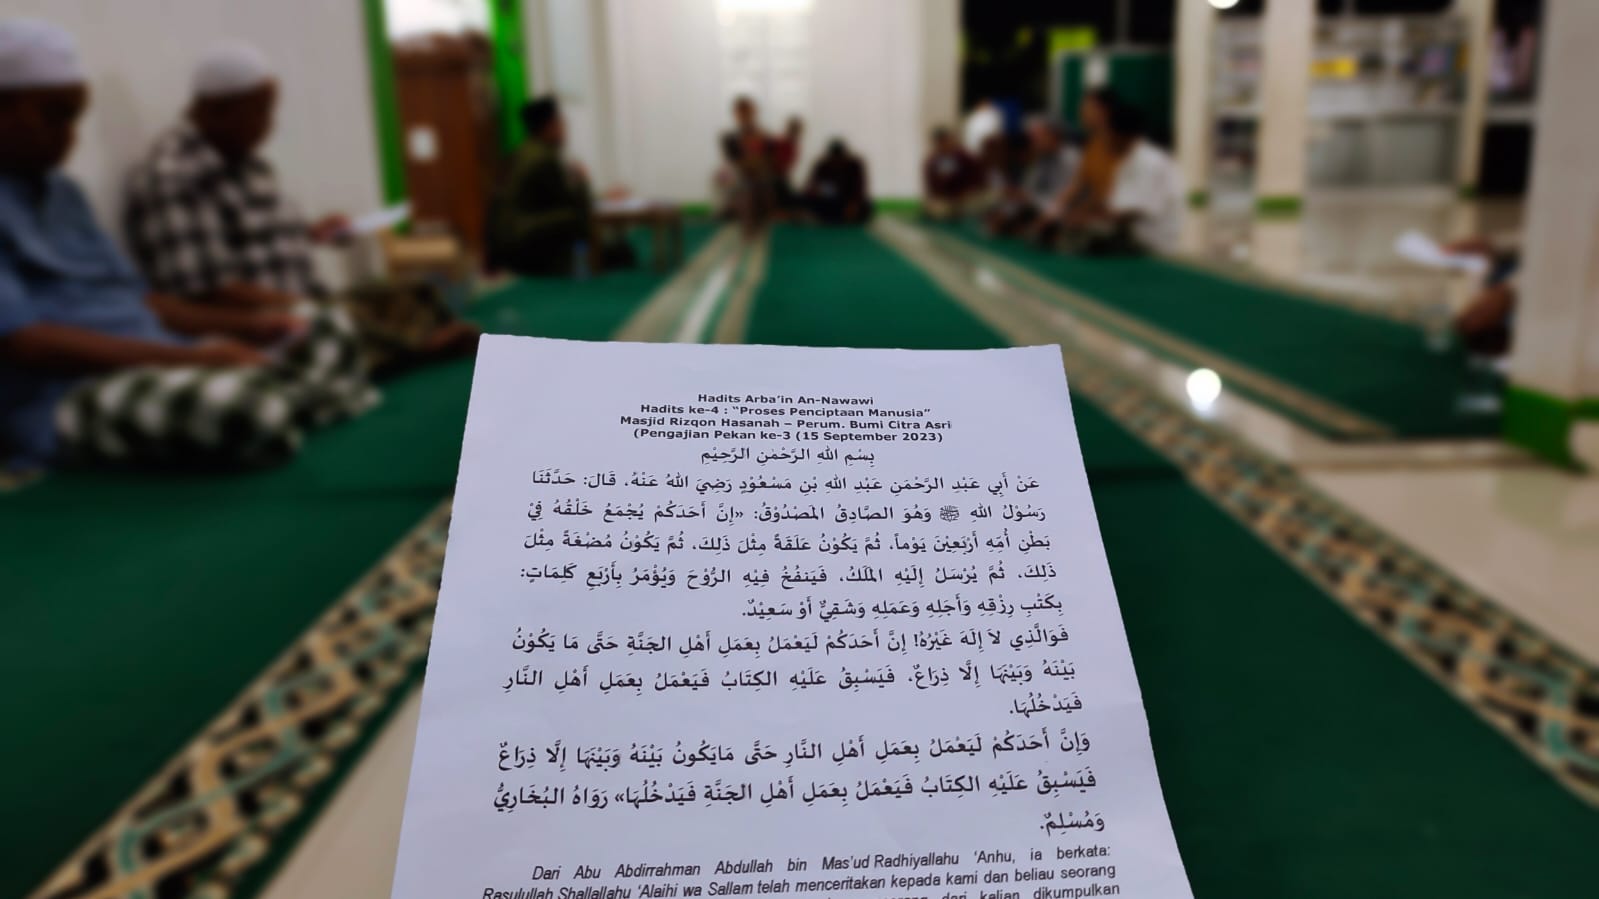 Hadits Arba’in An-Nawawi
Hadits ke-4 : “Proses Penciptaan Manusia”
Masjid Rizqon Hasanah – Perum. Bumi Citra Asri
(Pengajian Pekan ke-3 (15 September 2023)
بِسْمِ اللهِ الرَّحْمٰنِ الرَّحِيْمِ
عَنْ أَبِي عَبْدِ الرَّحْمَنِ عَبْدِ اللهِ بْنِ مَسْعُوْدٍ رَضِيَ اللهُ عَنْهُ، قَالَ: حَدَّثَنَا
رَسُوْلُ اللهِ ﷺ وَهُوَ الصَّادِقُ المَصْدُوْقُ: «إِنَّ أَحَدَكُمْ يُجْمَعُ خَلْقُهُ فِيْ
بَطْنِ أُمِّهِ أَرْبَعِيْنَ يَوْماً، ثُمَّ يَكُوْنُ عَلَقَةً مِثْلَ ذَلِكَ، ثُمَّ يَكُوْنُ مُضْغَةً مِثْلَ
ذَلِكَ، ثُمَّ يُرْسَلُ إِلَيْهِ المَلَكُ، فَيَنفُخُ فِيْهِ الرُّوْحَ وَيُؤْمَرُ بِأَرْبَعِ كَلِمَاتٍ:
بِكَتْبِ رِزْقِهِ وَأَجَلِهِ وَعَمَلِهِ وَشَقِيٌّ أَوْ سَعِيْدٌ.
فَوَالَّذِي لاَ إِلَهَ غَيْرُهُ! إِنَّ أَحَدَكُمْ لَيَعْمَلُ بِعَمَلِ أَهْلِ الجَنَّةِ حَتَّى مَا يَكُوْنُ
بَيْنَهُ وَبَيْنَهَا إِلَّا ذِرَاعٌ، فَيَسْبِقُ عَلَيْهِ الكِتَابُ فَيَعْمَلُ بِعَمَلِ أَهْلِ النَّارِ
فَيَدْخُلُهَا.
وَإِنَّ أَحَدَكُمْ لَيَعْمَلُ بِعَمَلِ أَهْلِ النَّارِ حَتَّى مَايَكُونُ بَيْنَهُ وَبَيْنَهَا إِلَّا ذِرَاعٌ
فَيَسْبِقُ عَلَيْهِ الكِتَابُ فَيَعْمَلُ بِعَمَلِ أَهْلِ الجَنَّةِ فَيَدْخُلُهَا» رَوَاهُ البُخَارِيُّ
وَمُسْلِمٌ.
Dari Abu Abdirrahman Abdullah bin Mas’ud Radhiyallahu ‘Anhu, ia berkata:
Rasulullah Shallallahu ‘Alaihi wa Sallam telah menceritakan kepada kami dan beliau seorang
dari kalian dikumpulkan